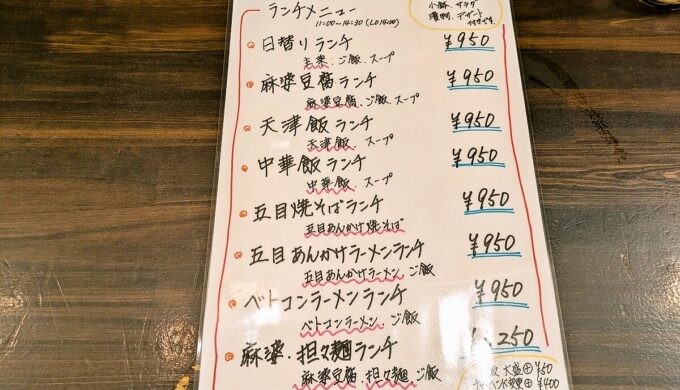 ランチメニュー
11:00〜14:30 (LO 14:00)
小鉢、サラダ
漬物、デザート
付きです
日替りランチ ¥950
主菜、ご飯、スープ
麻婆豆腐ランチ ¥950
麻婆豆腐、ご飯、スープ
天津飯ランチ ¥950
天津飯、スープ
中華飯ランチ ¥950
中華飯、スープ
五目焼そばランチ ¥950
五目あんかけ焼そば
五目あんかけラーメンランチ ¥950
五目あんかけラーメン、ご飯
ベトコンラーメンランチ ¥950
ベトコンラーメン、ご飯
麻婆・担々麺ランチ 1,250
麻婆豆腐、担々麺、ご飯
大盛⊕¥50
変更⊕¥400